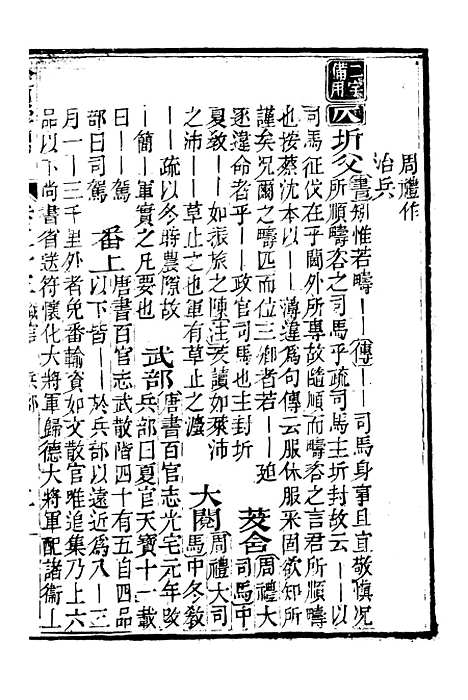 周禮作
治兵
二字
備用
八
圻父
書矧惟若疇｜｜傳｜｜司馬身事且宜敬慎況
所順疇咨之司馬乎疏司馬主圻封故云｜｜以
司馬征伐在乎閫外所專故隨順而疇咨之言君所順疇
也按蔡沈本以｜｜薄違爲句傳云服休服采固欲知所
謹矣況爾之疇匹而位三卿者若｜｜廹
逐違命者乎｜｜政官司馬也主封圻
茇舍
周禮大
司馬中
夏敎｜｜如振旅之陳注茇讀如萊沛
之沛｜｜草止之也軍有草止之灋
大閱
周禮大司
馬中冬敎
｜｜疏以冬時農隙故
｜簡｜軍實之凡要也
武部
唐書百官志光宅元年改
兵部曰夏官天寶十一載
曰｜｜駕
部曰司駕
番上
唐書百官志武散階四十有五自四品
以下皆｜｜於兵部以遠近爲八｜三
月一｜三千里外者免番輸資如文散官唯追集乃上六
品以下尚書省送符懷化大將軍歸德大將軍配諸衞｜